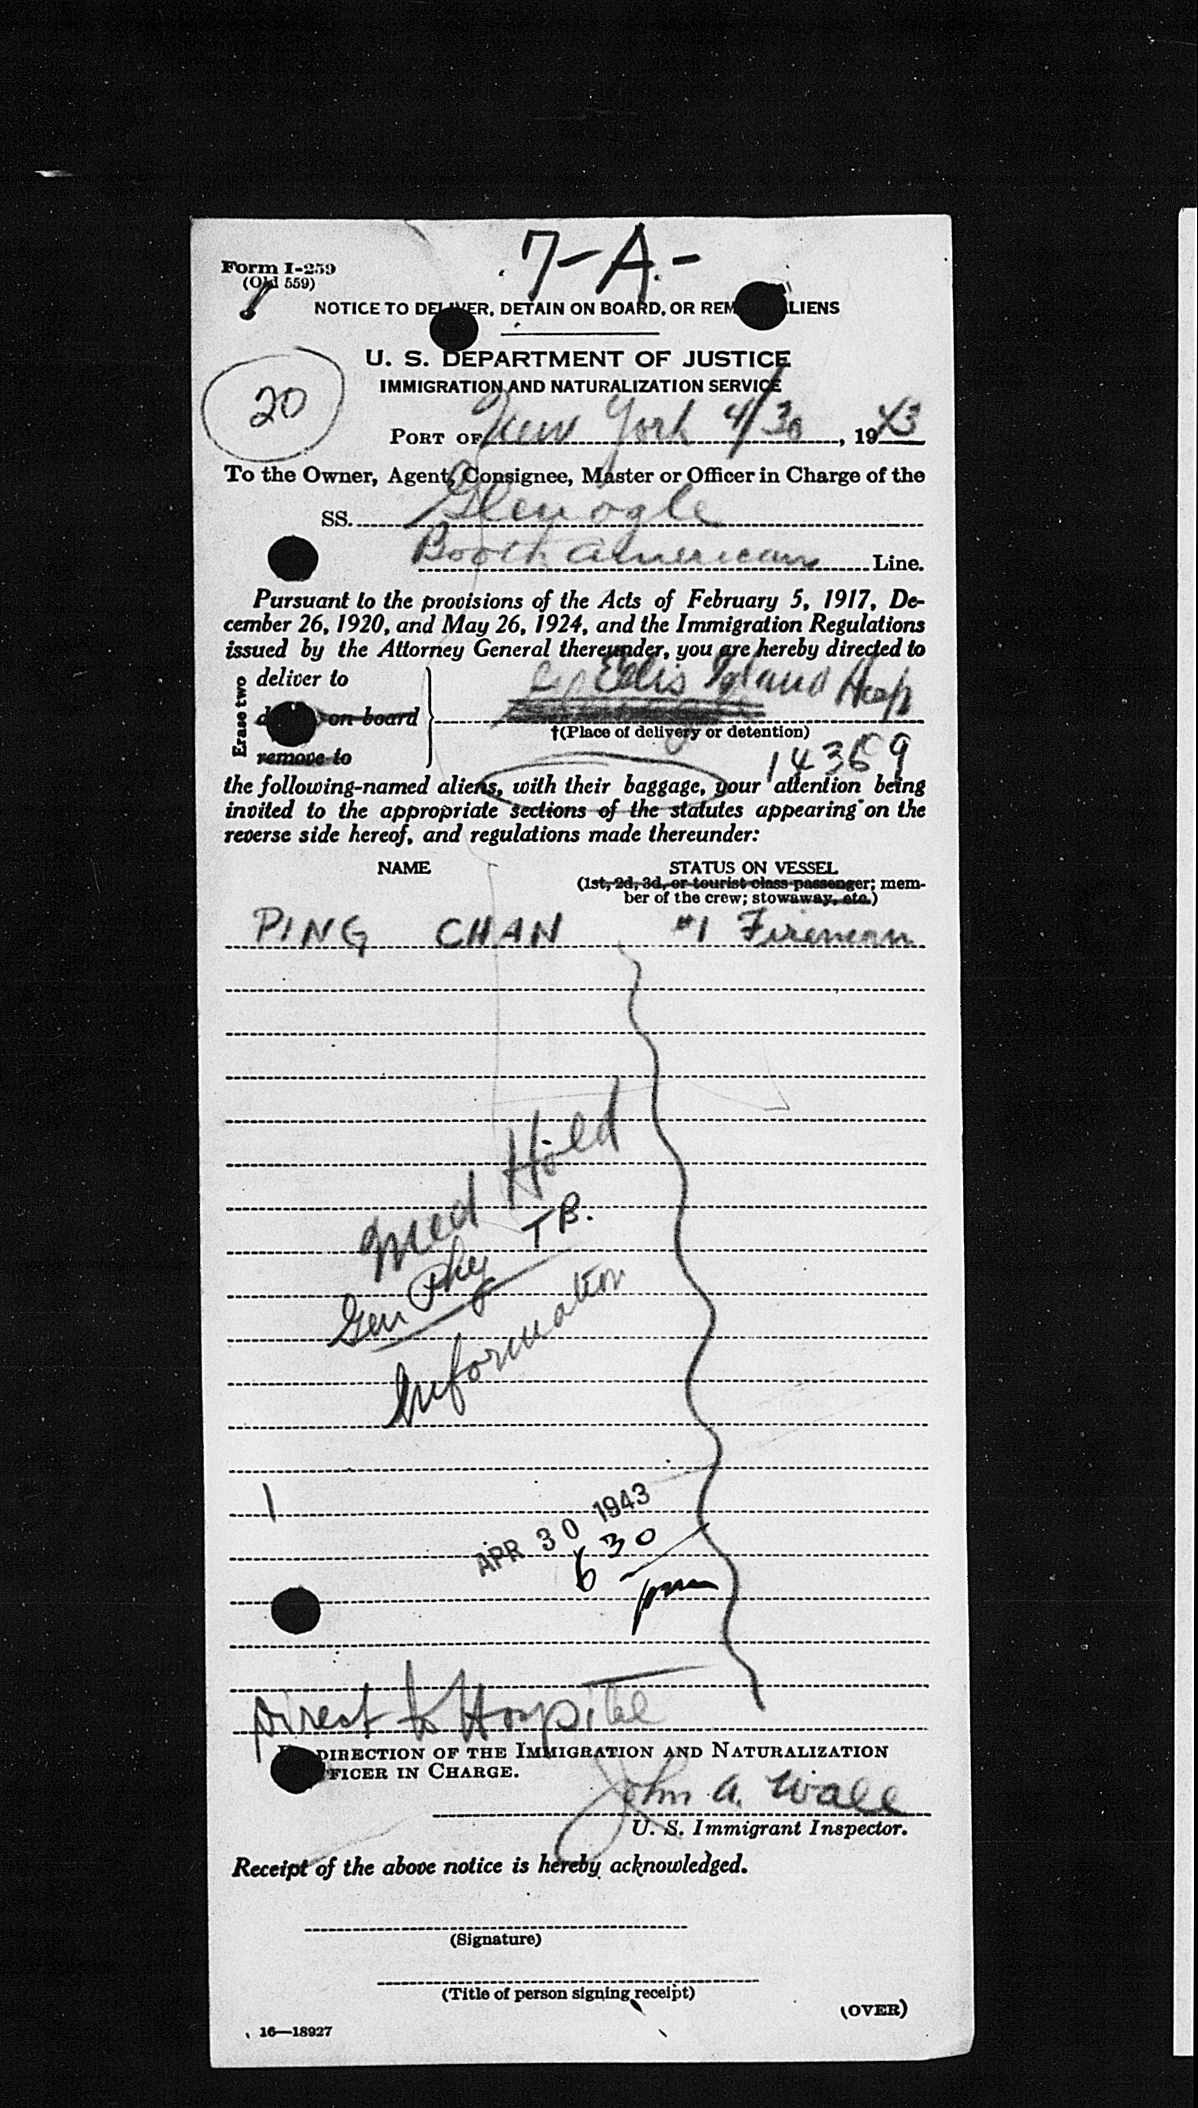 7-A-
Form I-259
(Old 559)
NOTICE TO DELIVER, DETAIN ON BOARD, OR REM LIENS
U. S. DEPARTMENT OF JUSTICE
IMMIGRATION AND NATURALIZATION SERVICE
20
PORT OF New York 4/30, 1943
To the Owner, Agent, Consignee, Master or Officer in Charge of the
SS. Glenogle
Booth American Line.
Pursuant to the provisions of the Acts of February 5, 1917, De-
cember 26, 1920, and May 26, 1924, and the Immigration Regulations
issued by the Attorney General thereunder, you are hereby directed to
Erase two
deliver to
Ellis Island Hosp
on board
†(Place of delivery or detention)
remove to
14359
the following-named aliens, with their baggage, your attention being
invited to the appropriate sections of the statutes appearing on the
reverse side hereof, and regulations made thereunder:
NAME STATUS ON VESSEL
(1st, 2d, 3d, or tourist class passenger; mem-
ber of the crew; stowaway, etc.)
PING CHAN #1 Fireman
Med Hold
Gen Phy TB.
Information
1
APR 30 1943
6 30
pm
Direct to Hospital
DIRECTION OF THE IMMIGRATION AND NATURALIZATION
FICER IN CHARGE.
John A. Wall
U. S. Immigrant Inspector.
Receipt of the above notice is hereby acknowledged.
(Signature)
(Title of person signing receipt)
(OVER)
16—18927